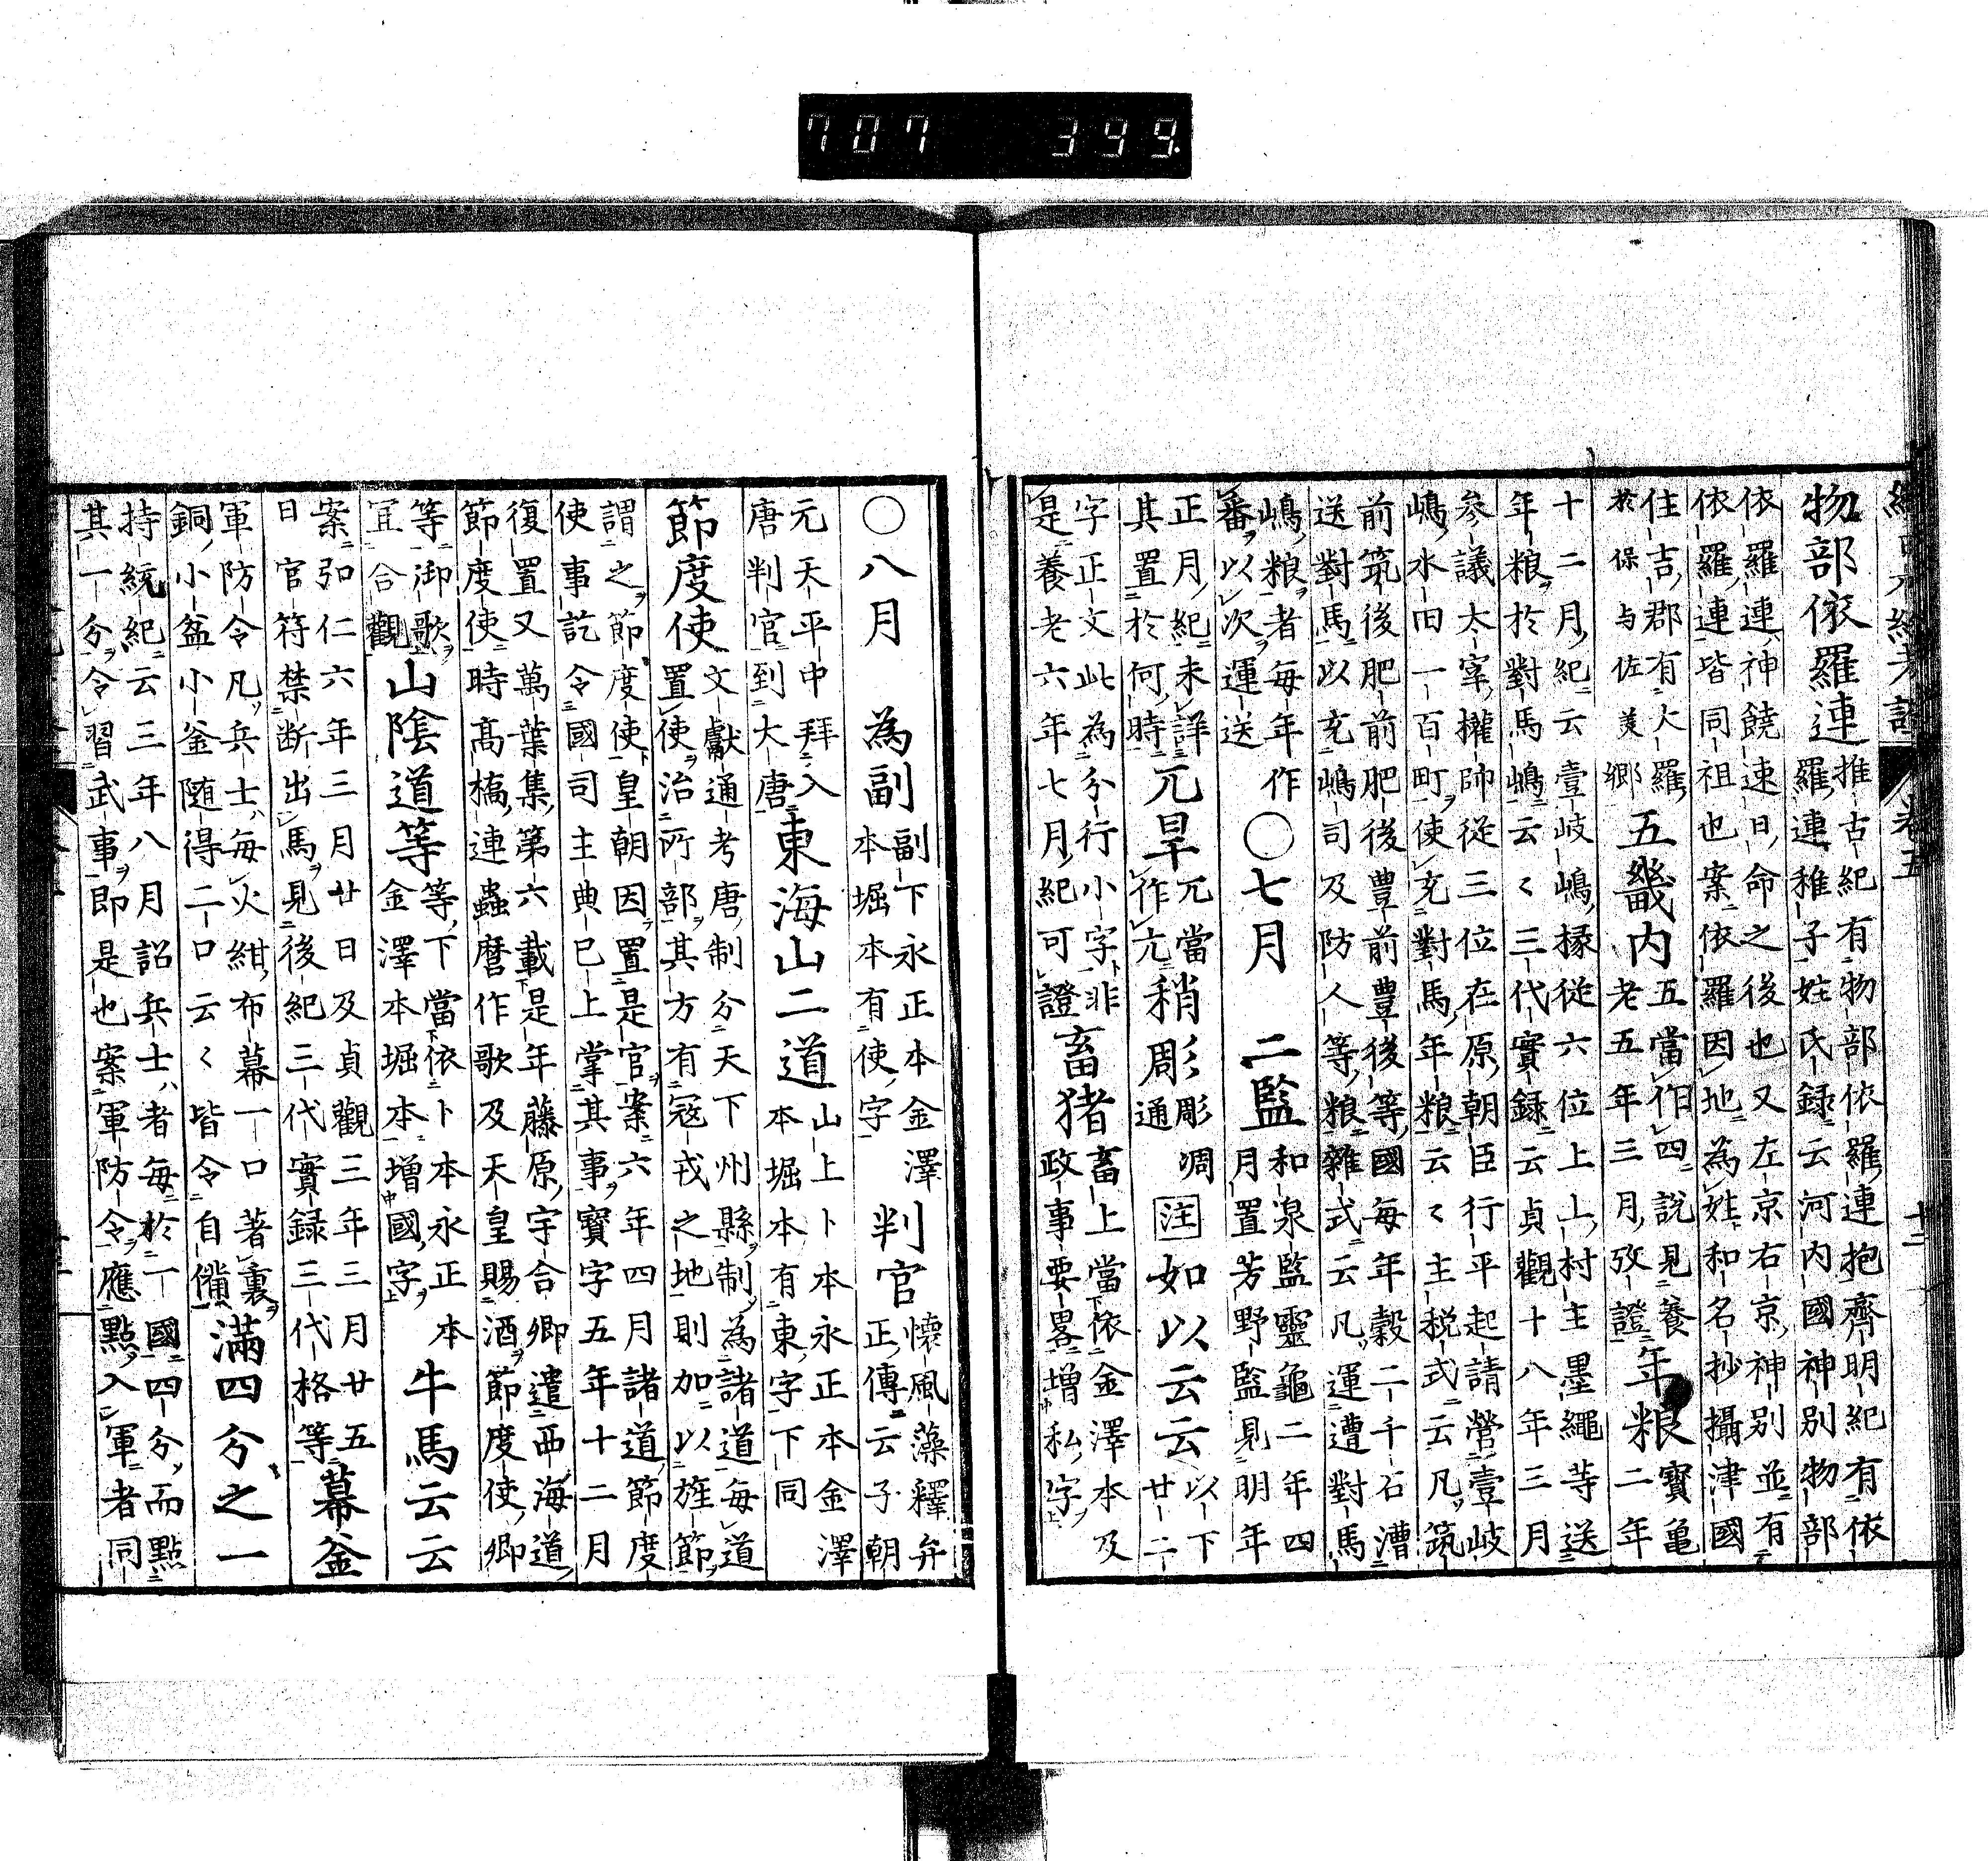 707 399
物部依羅連
推古紀有物部依羅連抱齊明紀有依
羅連稚子姓氏録云河内國神別物部
依羅連神饒速日命之後也又左京右京神別並有
依羅連皆同祖也案依羅因地為姓和名抄攝津國
住吉郡有大羅
於保与佐美郷
五畿内
五當作四説見養
老五年三月攷證
年粮
寳亀
二年
十二月紀云壹岐嶋掾從六位上上村主墨繩等送
年粮於對馬嶋云〻三代實録云貞觀十八年三月
参議大宰權帥從三位在原朝臣行平起請營壹岐
嶋水田一百町使充對馬年粮云〻主税式云凡筑
前筑後肥前肥後豊前豊後等國每年穀二千石漕
送對馬以充嶋司及防人等粮雜式云凡運漕對馬
嶋粮者每年作
番以次運送
○七月
二監
和泉監靈龜二年四
月置芳野監見明年
正月紀未詳
其置於何時
亢旱
亢當
作亢
稍彫
彫凋
通
注
如以云云
以下
廿二
字正文此為分行小字非
是養老六年七月紀可證
畜猪
畜上當依金澤本及
政事要畧增私字
○八月
為副
副下永正本金澤
本堀本有使字
判官
懷風藻釋弁
正傳云子朝
元天平中拜入
唐判官到大唐
東海山二道
山上卜本永正本金澤
本堀本有東字下同
節度使
文獻通考唐制分天下州縣制為諸道每道
置使治所部其方有寇戎之地則加以旌節
謂之節度使皇朝因置是官案六年四月諸道節度
使事訖令國司主典已上掌其事寳字五年十二月
復置又萬葉集第六載是年藤原宇合卿遣西海道
節度使時高橋連蟲麿作歌及天皇賜酒節度使卿
等御歌
宜合觀
山陰道等
等下當依卜本永正本
金澤本堀本增國字
牛馬云云
案弘仁六年三月廿日及貞觀三年三月廿五
日官符禁断出馬見後紀三代實録三代格等
幕釜
軍防令凡兵士每火紺布幕一口著裏
銅小盆小釜随得二口云〻皆令自備
滿四分之一
持統紀云三年八月詔兵士者每於一國四分而點
其一分令習武事即是也案軍防令應點入軍者同